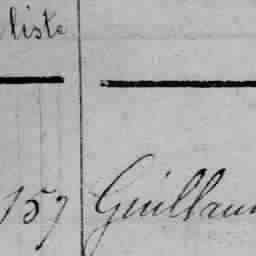 liste
157 Guillau